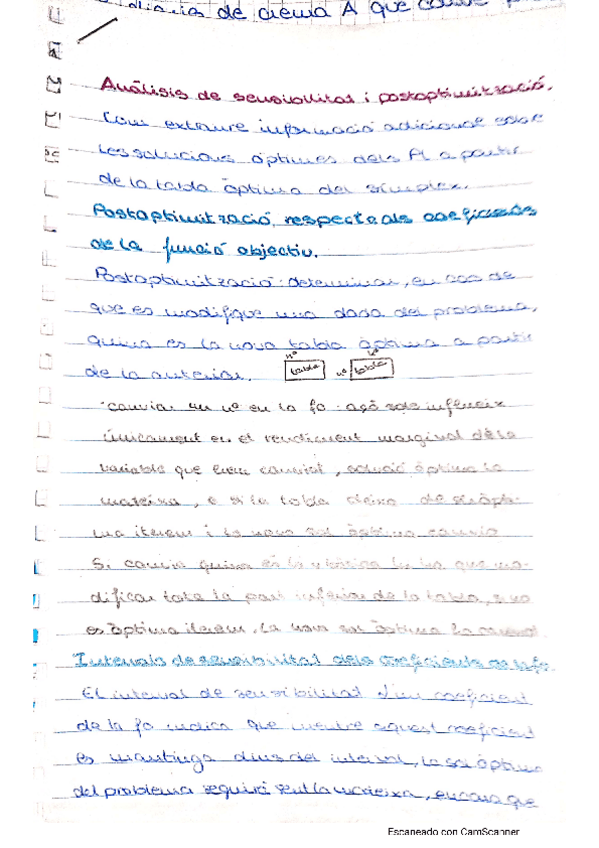 diaria de crema A que
Anàlisis de sensibilitat i postoptimització.
Com extraure informació adicional sobre
les solucions òptimes dels PL a partir
de la tabla òptima del simplex.
Postoptimització respecte als coeficients
de la funció objectiu.
Postoptimització: determinar, en cas de
que es modifique una dada del problema,
quina es la nova tabla òptima a partir
de la anterior. nº tabla nº nº tabla
canviar un nº en la fo: açò sols influeix
únicament en el rendiment marginal de la
variable que hem canviat, solució òptima la
mateixa, e si la tabla deixa de ser òpti-
ma iterem i la nova sol òptima canvia
Si canvia quina es la bàsica hi ha que mo-
dificar tota la part inferior de la tabla, si no
es òptima iterem, la nova sol òptima
Intervals de sensibilitat dels coeficients de la fo
El interval de sensibilitat d'un coeficient
de la fo indica que mentre aquest coeficient
es mantinga dins del interval, la sol òptima
del problema seguirà sent la mateixa, encara que
Escaneado con CamScanner